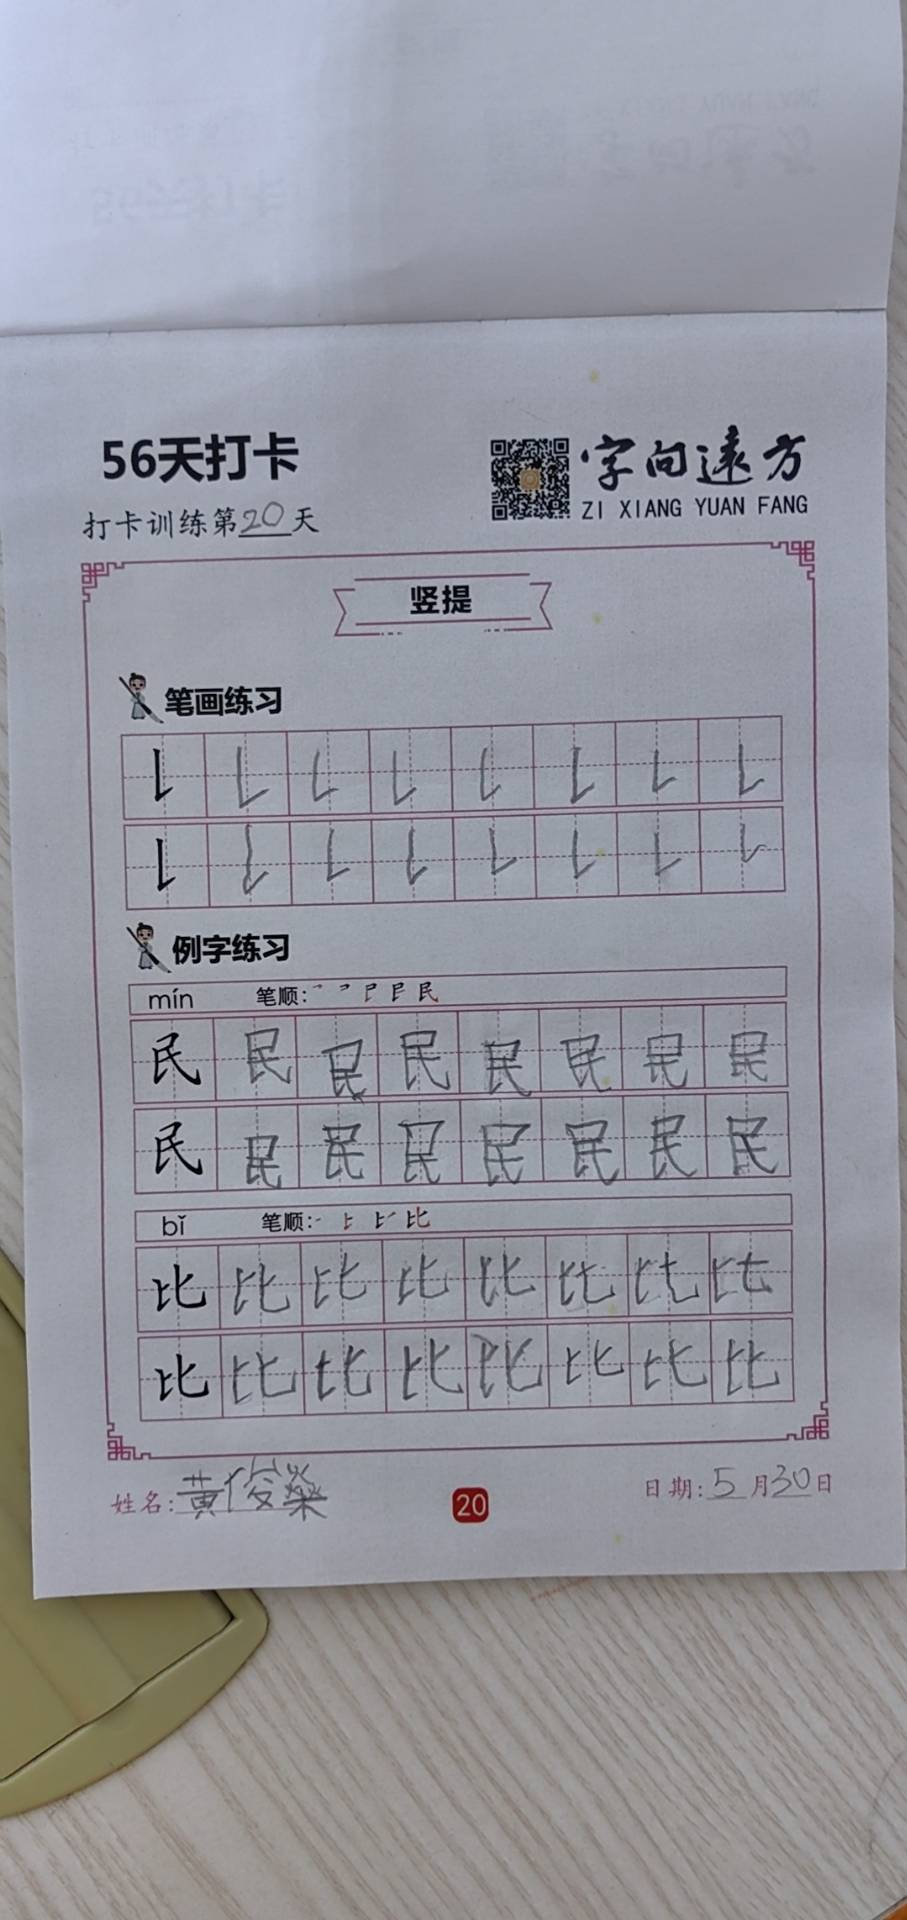 56天打卡
字向遠方
ZI XIANG YUAN FANG
打卡训练第20天
竖提
笔画练习
例字练习
mín 笔顺:
民 民 民 民 民 民 民 民
民 民 民 民 民 民 民 民
bǐ 笔顺:
比 比 比 比 比 比 比 比
比 比 比 比 比 比 比 比
姓名:黄俊燊
20
日期:5月30日